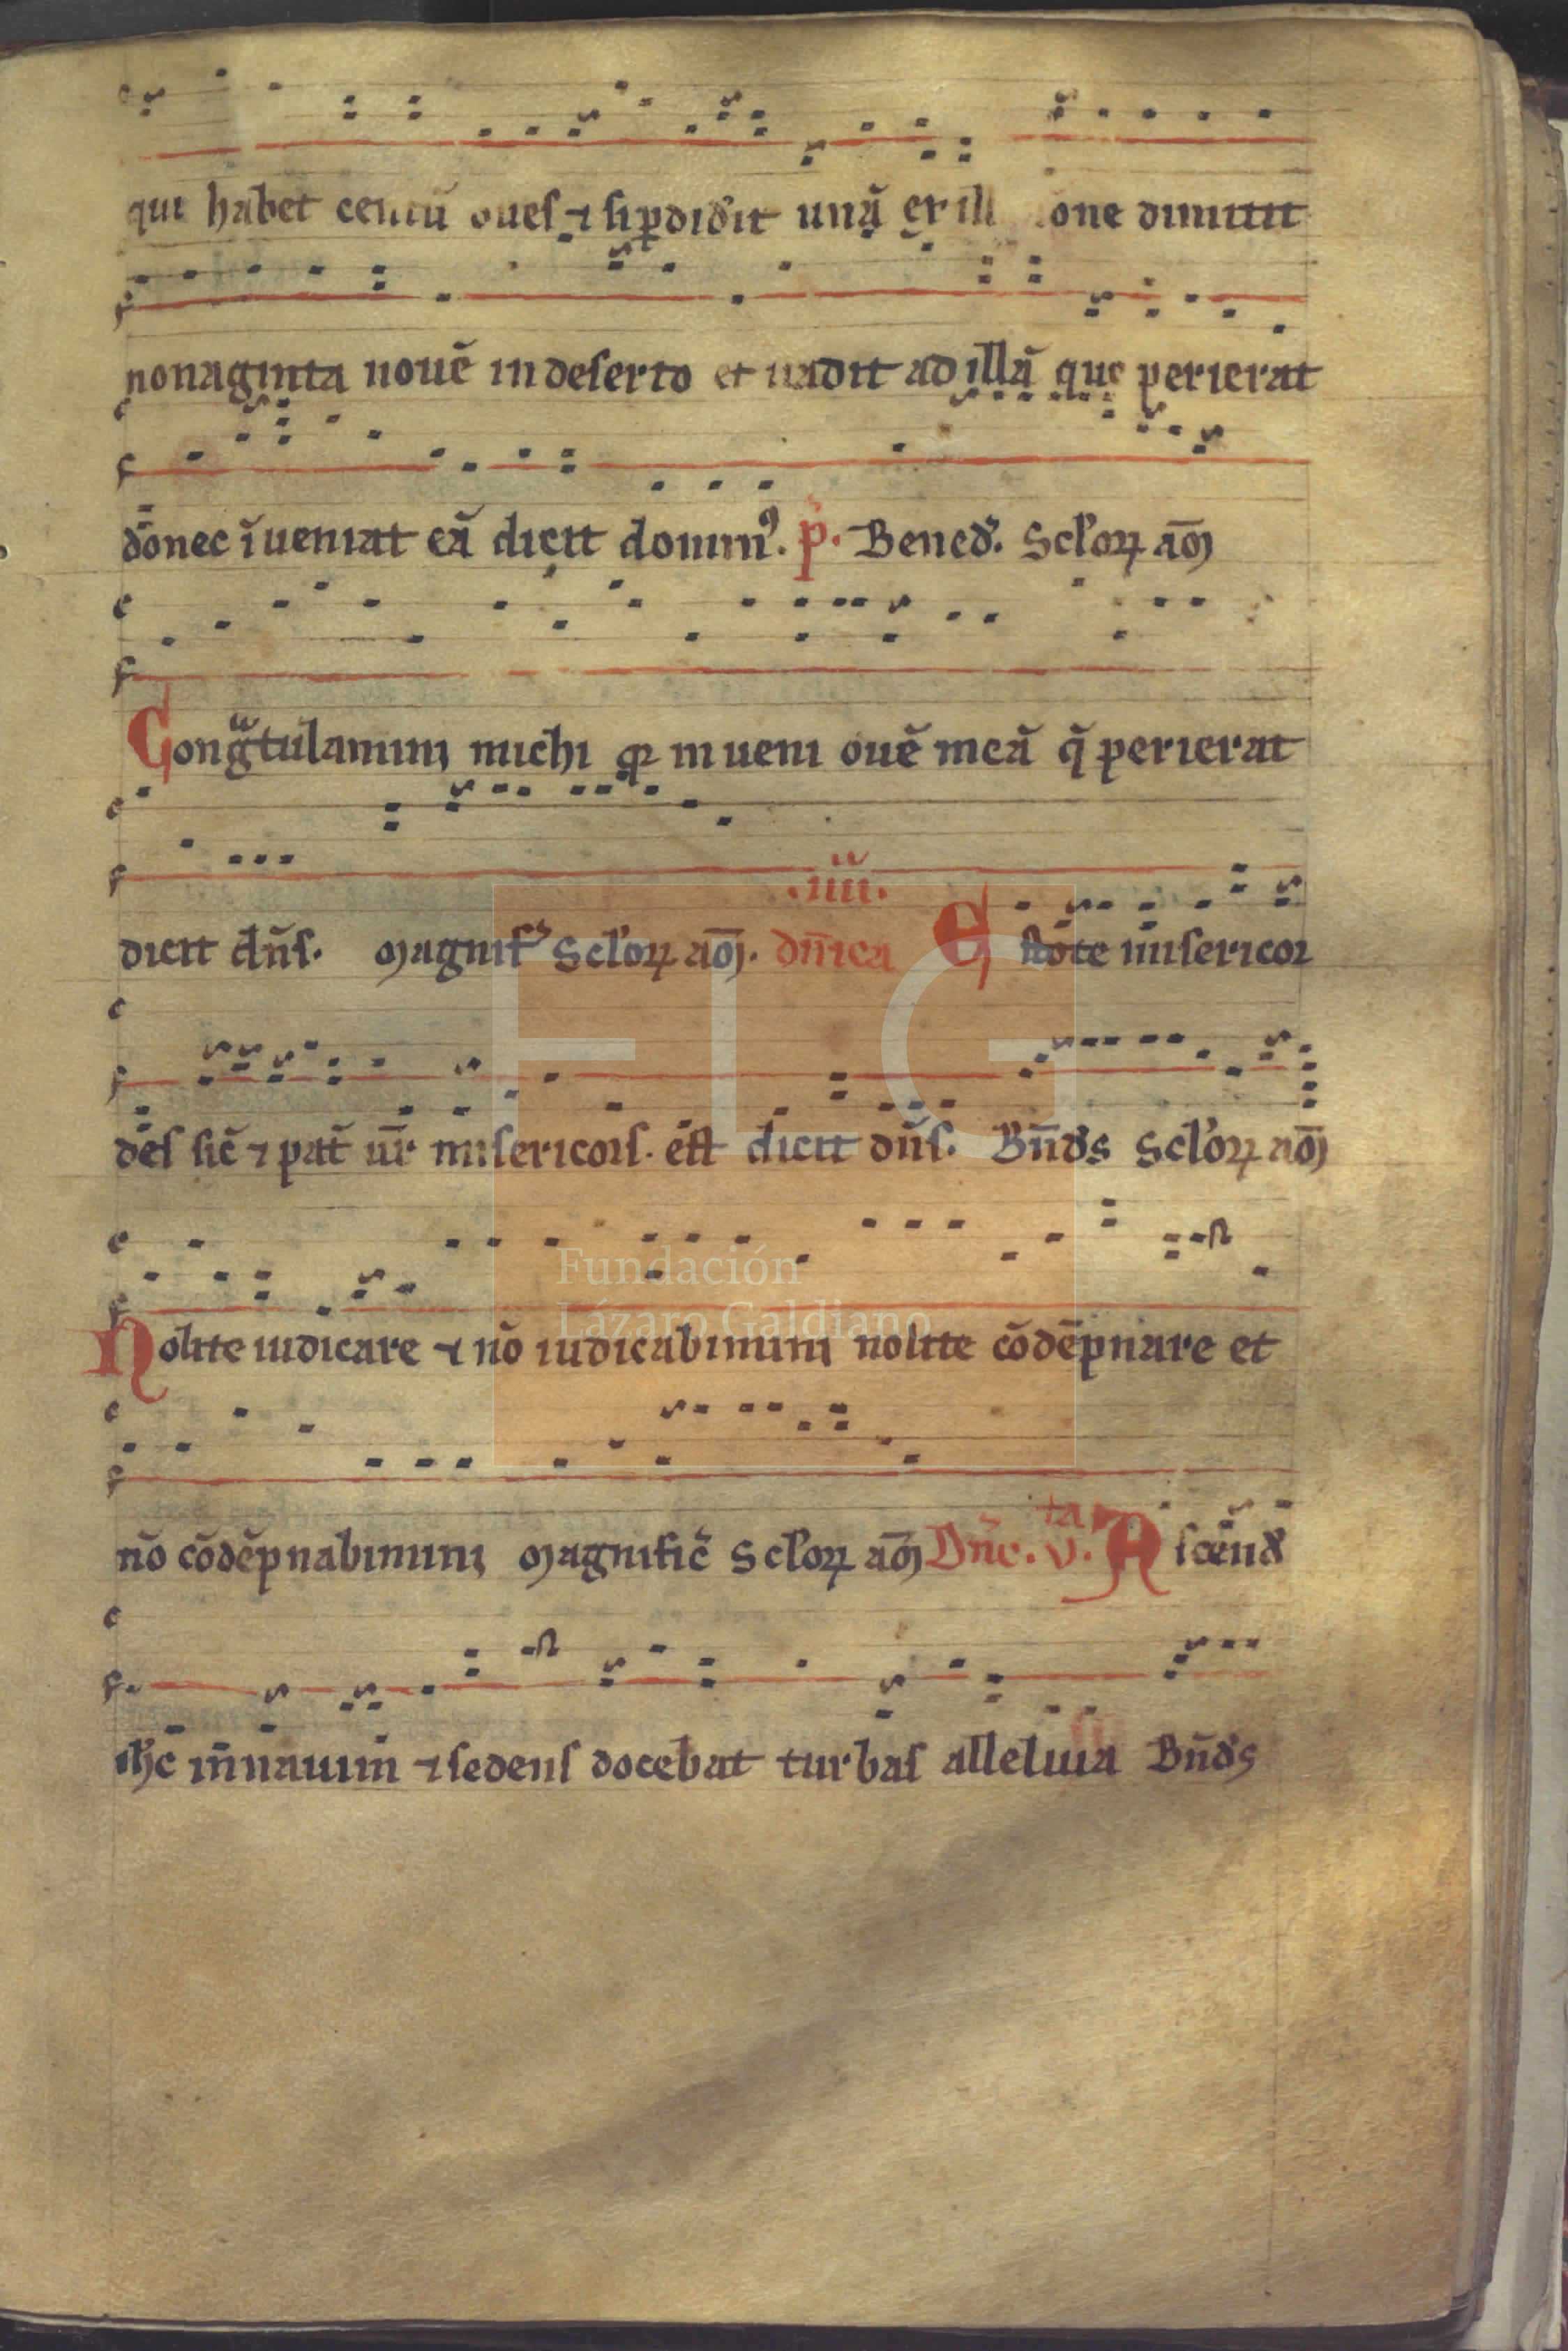 qui habet centū oues ⁊ si ꝑdid̓it unā ex ill one dimittit
nonaginta nouē in deserto et uadit ad illā que perierat
donec īueniat eā dicit dominꝰ. p̃. Bened̓. Scl̓oꝝ am̄
Congᵃtulamini michi qꝛ inueni ouē meā q̄ perierat
.iiii.
dicit dn̄s. Magnif Scl̓oꝝ am̄. dn̄ica Estote misericor
des sic̄ ⁊ pat̄ ur̄ misericors. est dicit dn̄s. Bn̄ds Scl̓oꝝ am̄
Nolite iudicare ⁊ nō iudicabimini nolite cōdēpnare et
nō cōdēpnabimini Magnific̄ Scl̓oꝝ am̄ Dn̄c. v.ta Ascend̓
ih̄c in nauim ⁊ sedens docebat turbas alleluia Bn̄ds
Fundación
Lázaro Galdiano